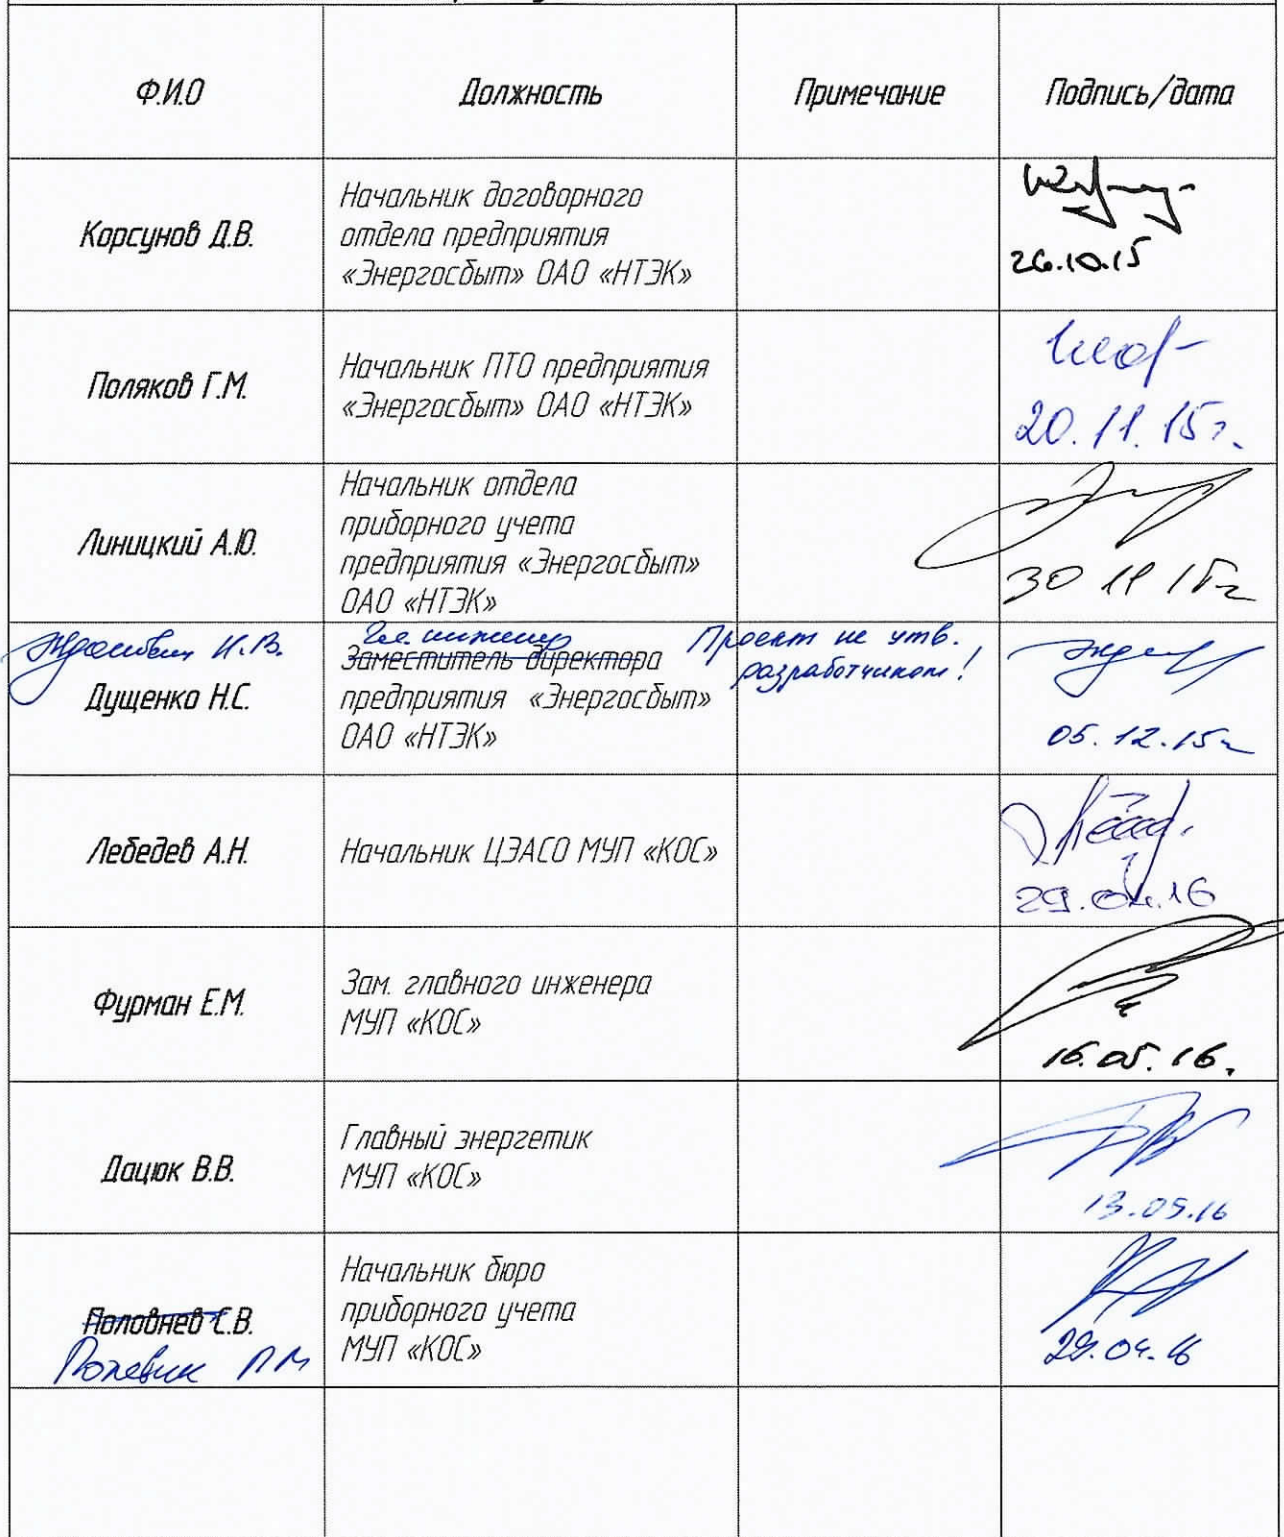 Ф.И.О
Должность
Примечание
Подпись/дата
Корсунов Д.В.
Начальник договорного
отдела предприятия
«Энергосбыт» ОАО «НТЭК»
26.10.15
Поляков Г.М.
Начальник ПТО предприятия
«Энергосбыт» ОАО «НТЭК»
20.11.15г.
Линицкий А.Ю.
Начальник отдела
приборного учета
предприятия «Энергосбыт»
ОАО «НТЭК»
30 11 15г
Н.В.
Дущенко Н.С.
Гл. инженер
Заместитель директора
предприятия «Энергосбыт»
ОАО «НТЭК»
Проект не утв.
разработчиком!
05.12.15г
Лебедев А.Н.
Начальник ЦЭАСО МУП «КОС»
29.04.16
Фурман Е.М.
Зам. главного инженера
МУП «КОС»
16.05.16.
Дацюк В.В.
Главный энергетик
МУП «КОС»
13.05.16
Половнев С.В.
Начальник бюро
приборного учета
МУП «КОС»
29.04.16